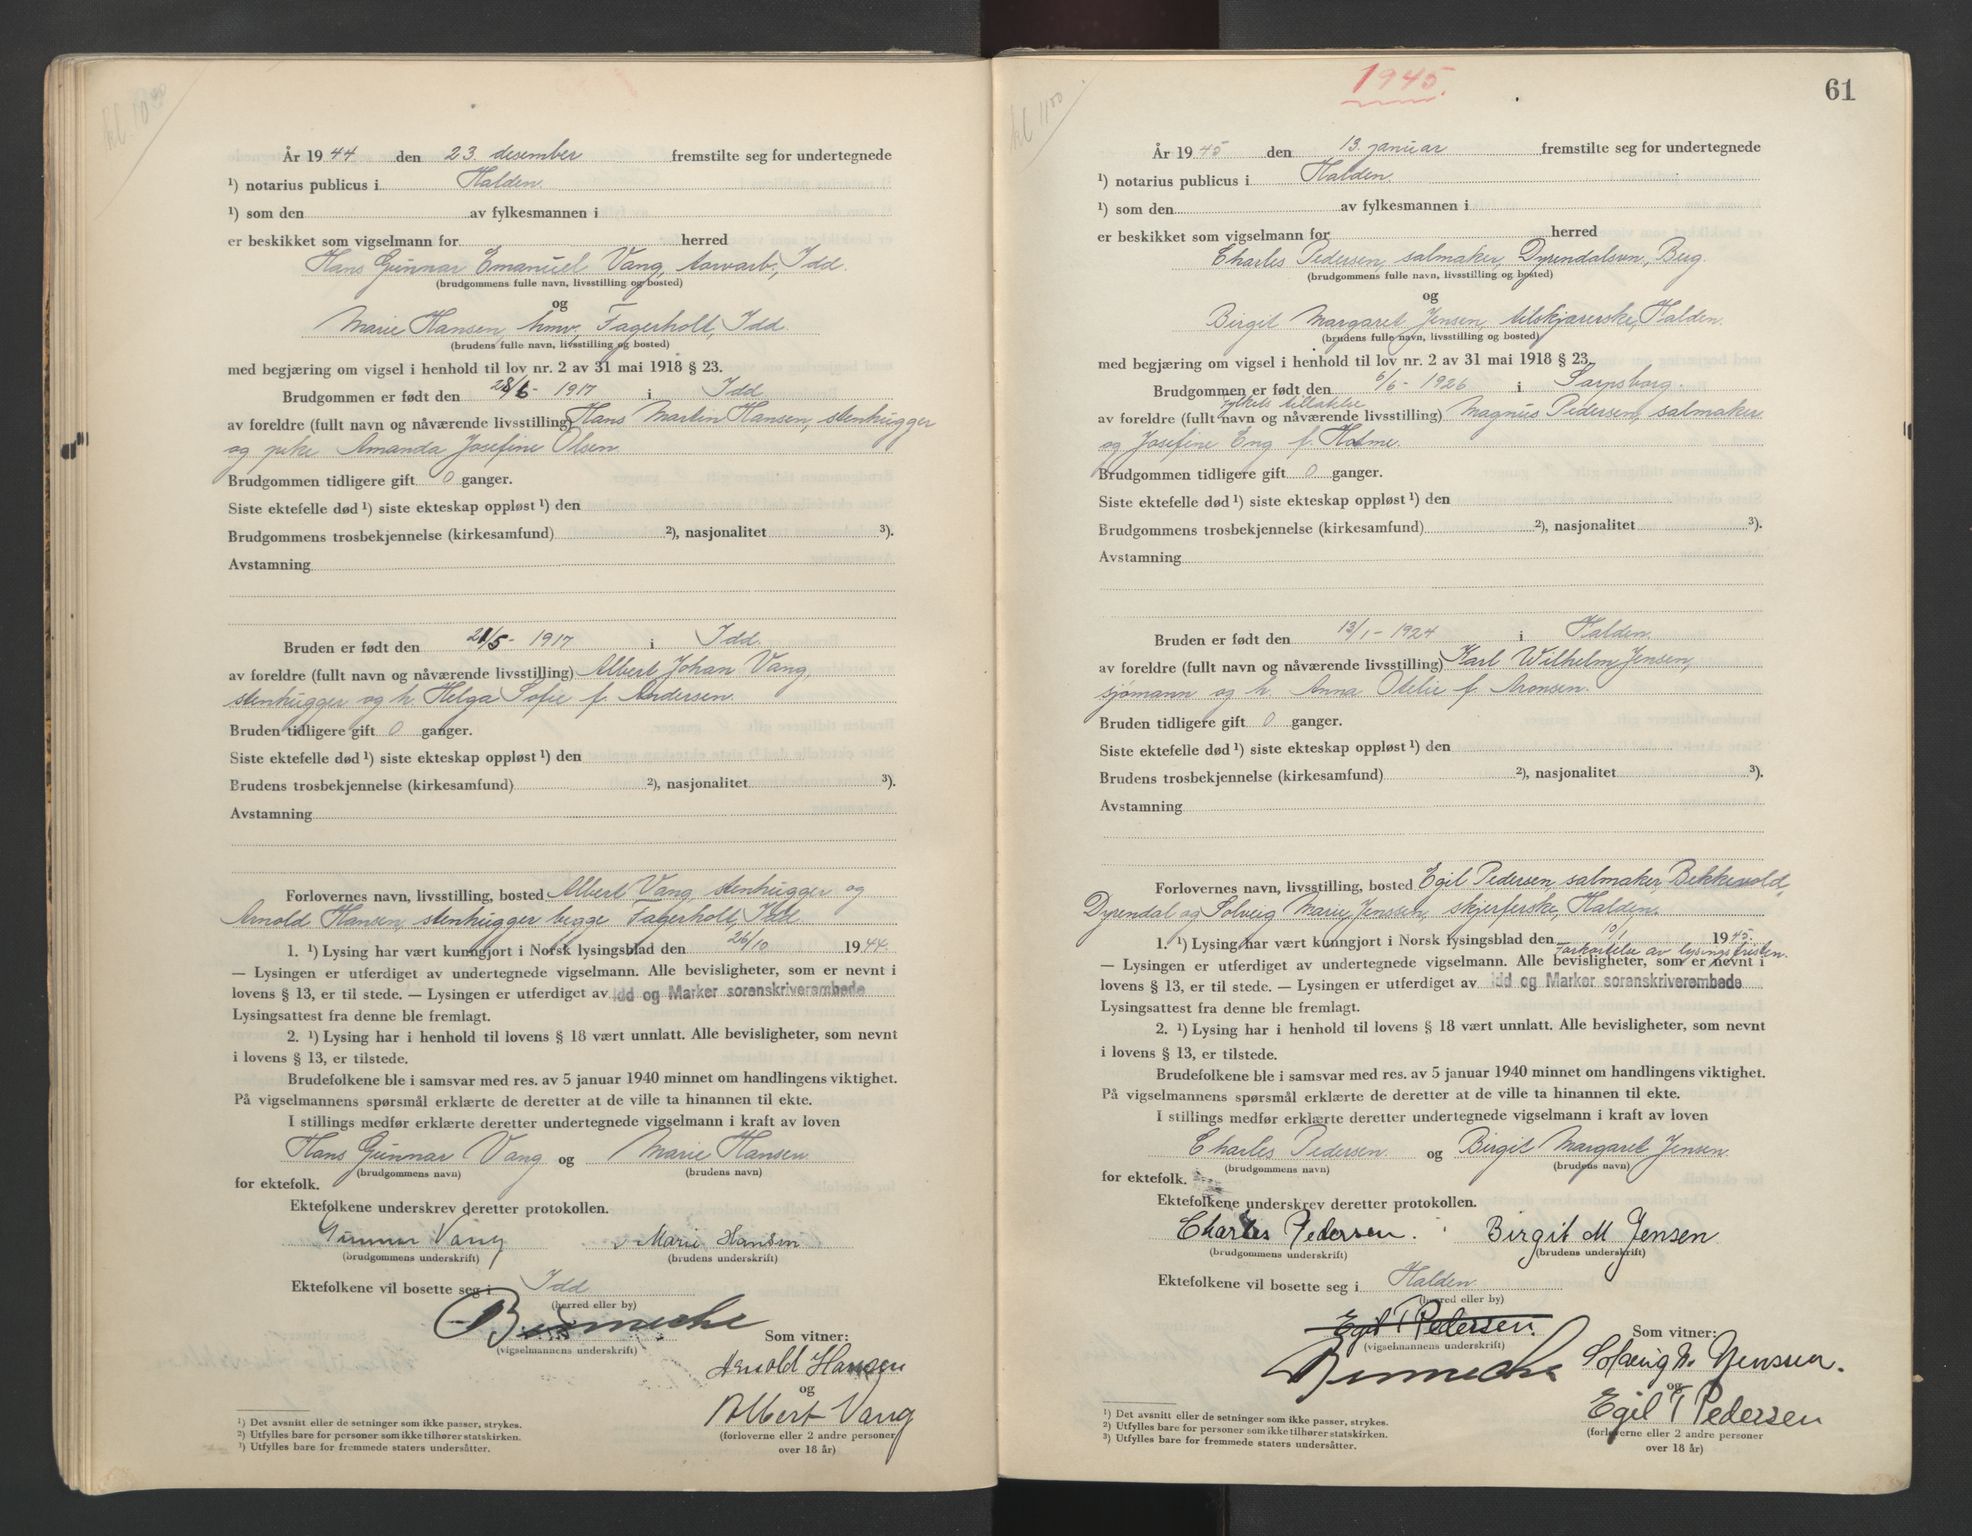 kl. 10³⁰
År 1944 den 23. desember fremstilte seg for undertegnede
¹) notarius publicus i Halden.
¹) som den av fylkesmannen i
er beskikket som vigselmann for herred
Hans Gunnar Emanuel Vang, torvarb., Idd.
(brudgommens fulle navn, livsstilling og bosted)
og
Marie Hansen, hmv., Fagerholt, Idd.
(brudens fulle navn, livsstilling og bosted)
med begjæring om vigsel i henhold til lov nr. 2 av 31 mai 1918 § 23.
Brudgommen er født den 28/6 - 1917 i Idd
av foreldre (fullt navn og nåværende livsstilling) Hans Martin Hansen, stenhugger
og pike Amanda Josefine Olsen
Brudgommen tidligere gift 0 ganger.
Siste ektefelle død ¹) siste ekteskap oppløst ¹) den
Brudgommens trosbekjennelse (kirkesamfund) ²), nasjonalitet ³).
Avstamning
Bruden er født den 21/5 - 1917 i Idd.
av foreldre (fullt navn og nåværende livsstilling) Albert Johan Vang,
stenhugger og h. Helga Sofie f. Andersen.
Bruden tidligere gift 0 ganger.
Siste ektefelle død ¹) siste ekteskap oppløst ¹) den
Brudens trosbekjennelse (kirkesamfund) ²), nasjonalitet ³).
Avstamning
Forlovernes navn, livsstilling, bosted Albert Vang, stenhugger og
Arnold Hansen, stenhugger begge Fagerholt, Idd
1. ¹) Lysing har vært kunngjort i Norsk lysingsblad den 26/10 1944.
— Lysingen er utferdiget av undertegnede vigselmann. Alle bevisligheter, som er nevnt i
lovens § 13, er til stede. — Lysingen er utferdiget av Idd og Marker sorenskriverembede
Lysingsattest fra denne ble fremlagt.
2. ¹) Lysing har i henhold til lovens § 18 vært unnlatt. Alle bevisligheter, som nevnt
i lovens § 13, er tilstede.
Brudefolkene ble i samsvar med res. av 5 januar 1940 minnet om handlingens viktighet.
På vigselmannens spørsmål erklærte de deretter at de ville ta hinannen til ekte.
I stillings medfør erklærte deretter undertegnede vigselmann i kraft av loven
Hans Gunnar Vang og Marie Hansen
(brudgommens navn) (brudens navn)
for ektefolk.
Ektefolkene underskrev deretter protokollen.
Gunnar Vang Marie Hansen
(brudgommens underskrift) (brudens underskrift)
Ektefolkene vil bosette seg i Idd
(herred eller by)
(vigselmannens underskrift)
Som vitner:
Arnold Hansen
og
Albert Vang
(forloverne eller 2 andre personer
over 18 år)
¹) Det avsnitt eller de setninger som ikke passer, strykes.
²) Utfylles bare for personer som ikke tilhører statskirken.
³) Utfylles bare for fremmede staters undersåtter.
kl 11⁰⁰
1945.
61
År 1945 den 13. januar fremstilte seg for undertegnede
¹) notarius publicus i Halden.
¹) som den av fylkesmannen i
er beskikket som vigselmann for herred
Charles Pedersen, salmaker, Dyrendalsvn, Berg.
(brudgommens fulle navn, livsstilling og bosted)
og
Birgit Margaret Jensen, tilskjærerske, Halden.
(brudens fulle navn, livsstilling og bosted)
med begjæring om vigsel i henhold til lov nr. 2 av 31 mai 1918 § 23.
Brudgommen er født den 6/6 - 1926 i Sarpsborg.
fylkets tillatelse
av foreldre (fullt navn og nåværende livsstilling) Magnus Pedersen, salmaker
og Josefine Eng f. Holme.
Brudgommen tidligere gift 0 ganger.
Siste ektefelle død ¹) siste ekteskap oppløst ¹) den
Brudgommens trosbekjennelse (kirkesamfund) ²), nasjonalitet ³).
Avstamning
Bruden er født den 13/1 - 1924 i Halden.
av foreldre (fullt navn og nåværende livsstilling) Karl Wilhelm Jensen,
sjømann og h. Anna Otelie f. Aronsen.
Bruden tidligere gift 0 ganger.
Siste ektefelle død ¹) siste ekteskap oppløst ¹) den
Brudens trosbekjennelse (kirkesamfund) ²), nasjonalitet ³).
Avstamning
Forlovernes navn, livsstilling, bosted Egil Pedersen, salmaker, Bekkevold,
Dyrendal og Solveig Marie Jenssen, skjerferske, Halden.
1. ¹) Lysing har vært kunngjort i Norsk lysingsblad den 10/1 1945.
Forkortelse av lysingsfristen.
— Lysingen er utferdiget av undertegnede vigselmann. Alle bevisligheter, som er nevnt i
lovens § 13, er til stede. — Lysingen er utferdiget av Idd og Marker sorenskriverembede
Lysingsattest fra denne ble fremlagt.
2. ¹) Lysing har i henhold til lovens § 18 vært unnlatt. Alle bevisligheter, som nevnt
i lovens § 13, er tilstede.
Brudefolkene ble i samsvar med res. av 5 januar 1940 minnet om handlingens viktighet.
På vigselmannens spørsmål erklærte de deretter at de ville ta hinannen til ekte.
I stillings medfør erklærte deretter undertegnede vigselmann i kraft av loven
Charles Pedersen og Birgit Margaret Jensen
(brudgommens navn) (brudens navn)
for ektefolk.
Ektefolkene underskrev deretter protokollen.
Charles Pedersen. Birgit M Jensen
(brudgommens underskrift) (brudens underskrift)
Ektefolkene vil bosette seg i Halden.
(herred eller by)
Egil T Pedersen.
(vigselmannens underskrift)
Som vitner:
Solveig M. Jenssen.
og
Egil T Pedersen
(forloverne eller 2 andre personer
over 18 år)
¹) Det avsnitt eller de setninger som ikke passer, strykes.
²) Utfylles bare for personer som ikke tilhører statskirken.
³) Utfylles bare for fremmede staters undersåtter.